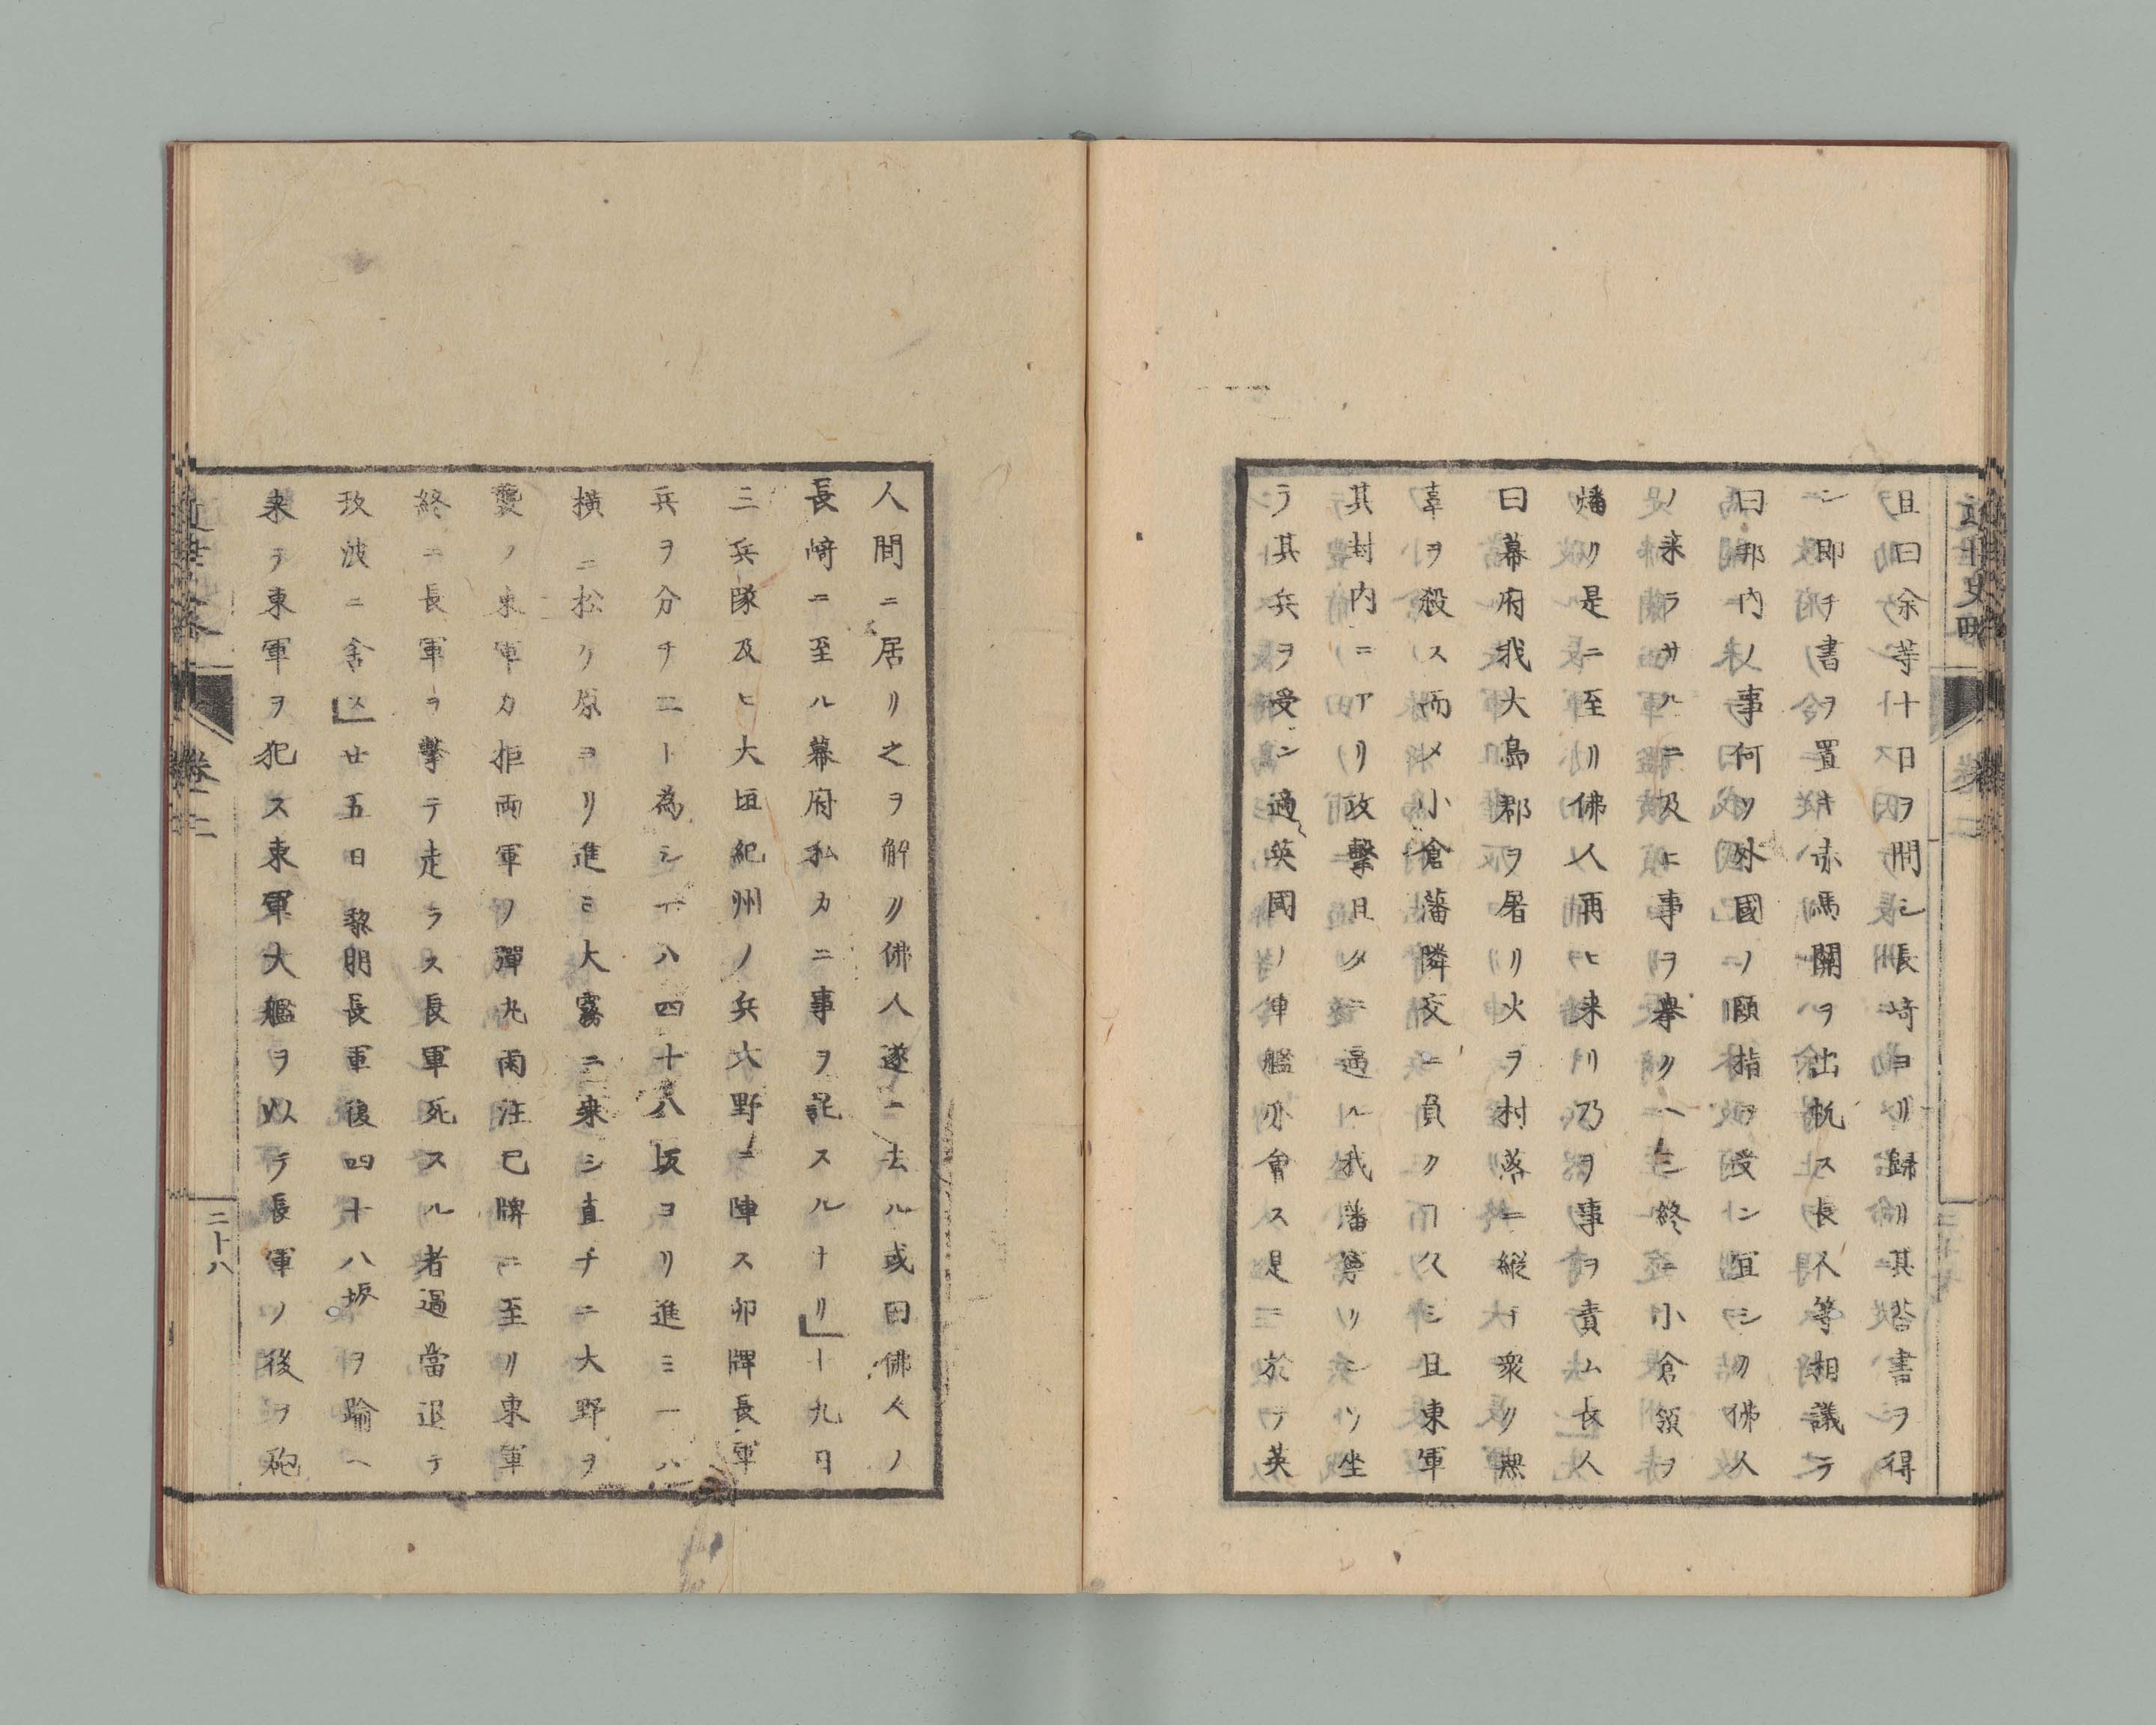 近世史略
卷二
且曰余等十日ヲ間シ長崎ヨリ歸リ其答書ヲ得
シ即チ書ヲ置キ赤馬關ヲ出帆ス長人等相議テ
曰邦内ノ事何ソ外國ノ頤指ヲ受ン宜シク佛人
ノ来ラサルニ及ヒ事ヲ擧クヘシ終ニ小倉領ヲ
燔ク是ニ至リ佛人再ヒ来リ乃ヲ事ヲ責ム長人
曰幕府我大島郡ヲ屠リ火ヲ村落ニ縦チ衆ク無
辜ヲ殺ス而メ小倉藩隣交ニ負クヿ久シ且東軍
其封内ニアリ攻擊旦夕ニ逼ル我藩豈ソ坐
ラ其兵ヲ受ン適英國ノ軍艦亦會ス是ニ於テ英
人間ニ居リ之ヲ解ク佛人遂ニ去ル或曰佛人ノ
長崎ニ至ル幕府私カニ事ヲ託スルナリ」十九日
三兵隊及ヒ大垣紀州ノ兵大野ニ陣ス卯牌長軍
兵ヲ分チ二ト為シ一ハ四十八坂ヨリ進ミ一ハ
横ニ松ケ原ヨリ進ミ大霧ニ来シ直チニ大野ヲ
襲ノ東軍力拒両軍ノ彈丸雨注巳牌ニ至リ東軍
終ニ長軍ヲ擊テ走ラス長軍死スル者過當退テ
玖波ニ舍ス」廿五日黎明長軍復四十八坂ヲ踰ヘ
来テ東軍ヲ犯ス東軍大艦ヲ以テ長軍ノ後ヲ砲
卷二
二十八